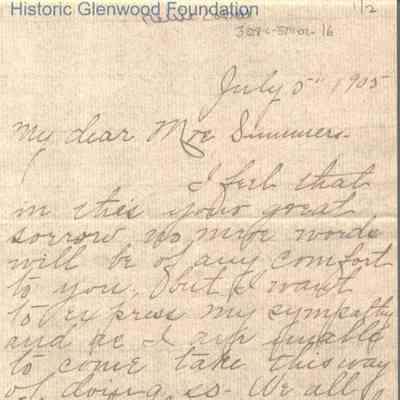 Historic Glenwood Foundation
1/2
July 5" 1905
My dear Mrs Summers-
I feel that
in this your great
sorrow no mere words
will be of any comfort
to you, but I want
to express my sympathy
and as I am unable
to come take this way
of doing so- We all